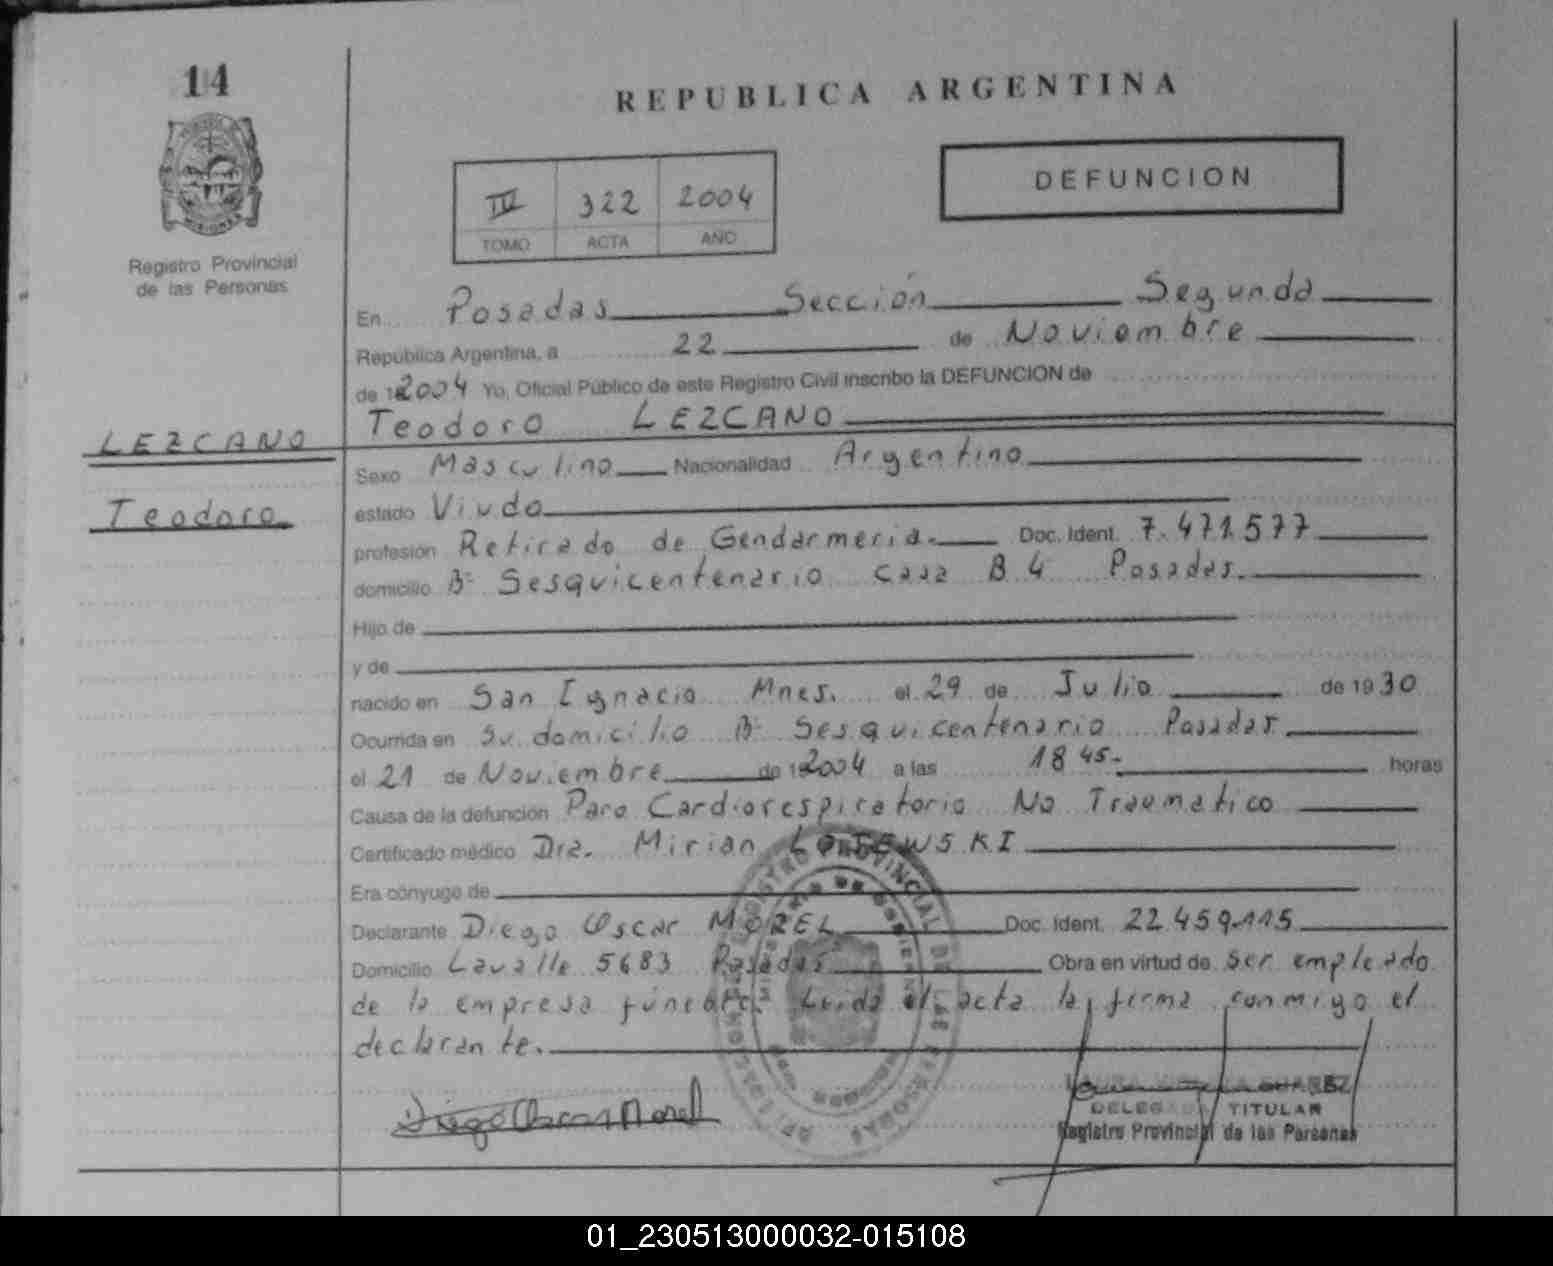 14
REPUBLICA ARGENTINA
DEFUNCION
III 322 2004
TOMO ACTA AÑO
Registro Provincial
de las Personas
En Posadas Sección Segunda
República Argentina, a 22 de Noviembre
de 2004 Yo, Oficial Público de este Registro Civil inscribo la DEFUNCION de
Teodoro LEZCANO
LEZCANO
Teodoro
Sexo Masculino Nacionalidad Argentino
estado Viudo
profesión Retirado de Gendarmeria. Doc. Ident. 7.471.577
domicilio Bº Sesquicentenario casa B 4 Posadas.
Hijo de
y de
nacido en San Ignacio Mnes. el 29 de Julio de 1930
Ocurrida en Su domicilio Bº Sesquicentenario Posadas
el 21 de Noviembre de 2004 a las 18 45. horas
Causa de la defunción Paro Cardiorespiratorio No Traumatico
Certificado médico Dra. Mirian
Era cónyuge de
Declarante Diego Oscar MOREL Doc. Ident. 22.459.115
Domicilio Lavalle 5683 Posadas Obra en virtud de Ser empleado
de la empresa fúnebre. Leida el acta la firma conmigo el
declarante.
Diego Oscar Morel
DELEGADA TITULAR
Registro Provincial de las Personas
REGISTRO PROVINCIAL DE LAS PERSONAS
01_230513000032-015108